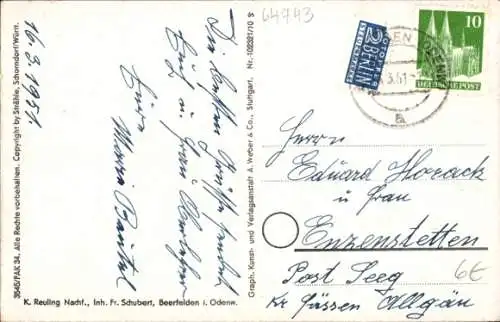 64943
16.3.1951.
Die besten Grüße sendet
Euch u. Frau
Eure
Maria
3545/FAK 34. Alle Rechte vorbehalten. Copyright by Strähle, Schorndorf/Württ.
K. Reuling Nachf., Inh. Fr. Schubert, Beerfelden i. Odenw.
Graph. Kunst- und Verlagsanstalt A. Weber & Co., Stuttgart. Nr. 102321/10 S
NOTOPFER
2 BERLIN
STEUERMARKE
10
DEUTSCHE POST
.3.51
a
Herrn
Eduard Horack
u Frau
Enzenstetten
Post Seeg
Kr Füssen Allgäu
6€